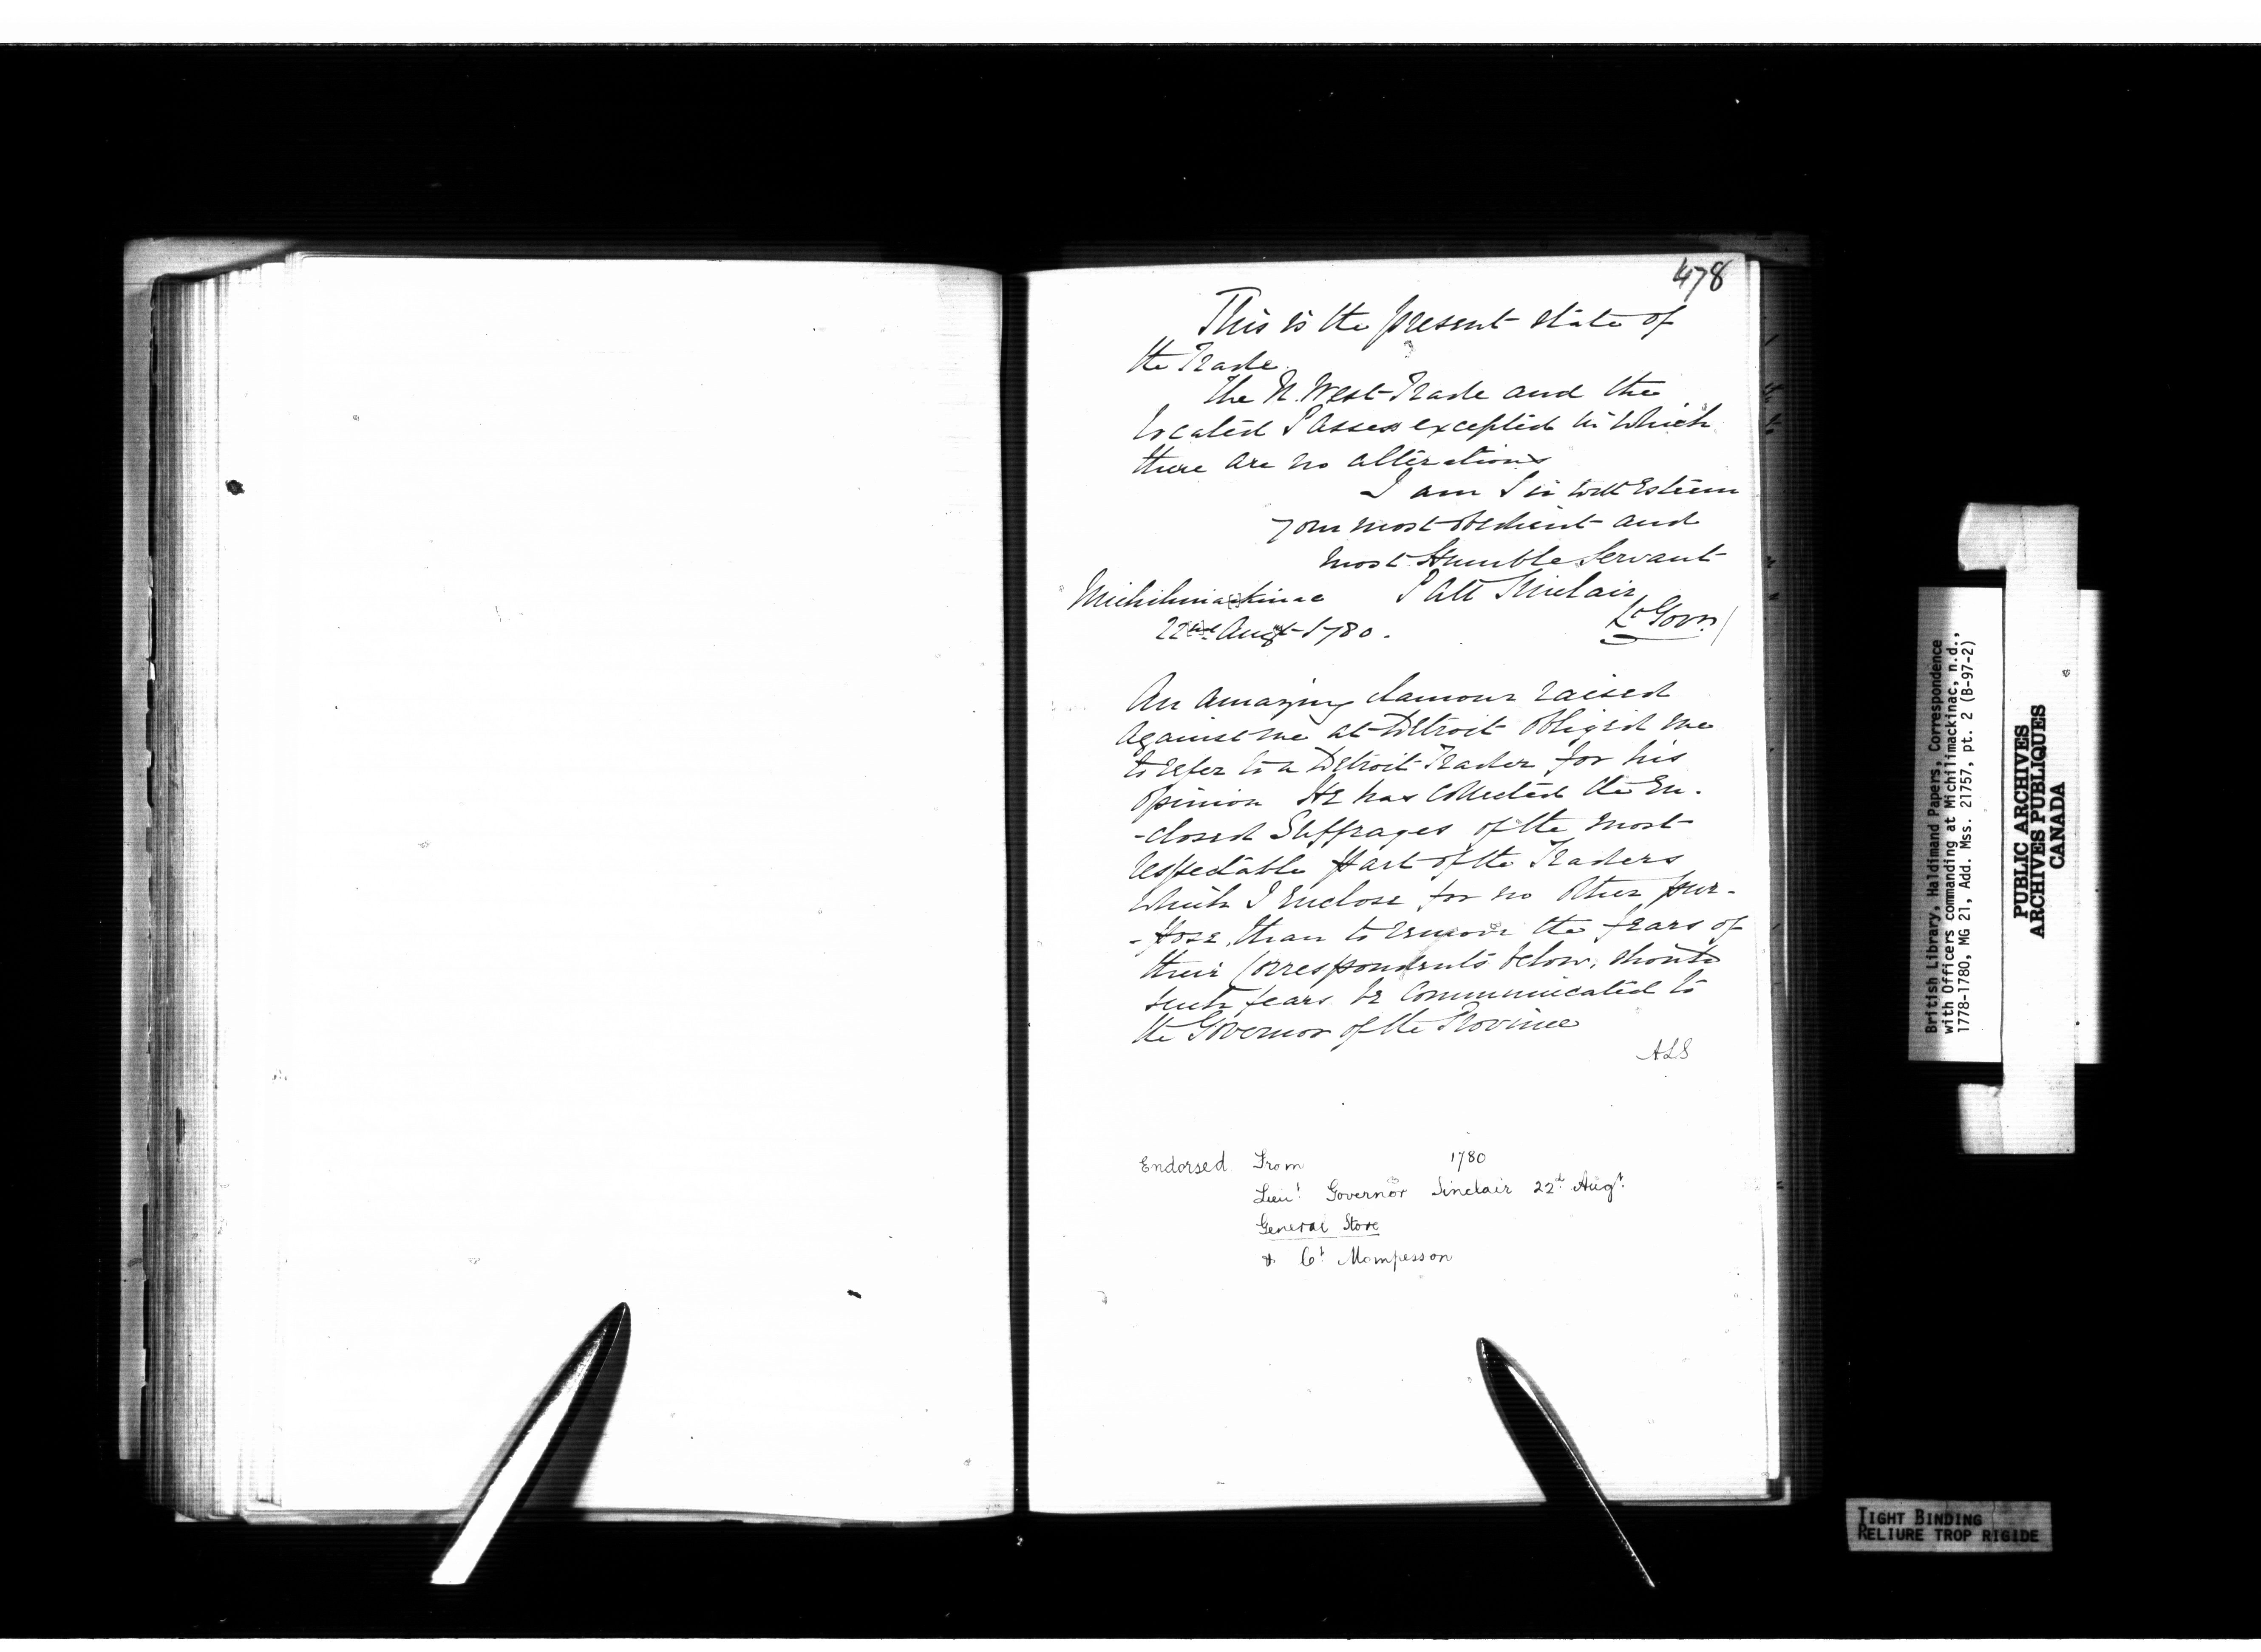 478
This is the present state of
the Trade.
The N. West Trade and the
located Passes excepted in which
there are no alterations
I am Sir with Esteem
your most obedient and
most Humble Servant
Michilimackinac Patt Sinclair
22nd Augt 1780. Lt Govr.
An amazing clamour raised
against me at Detroit obliged me
to refer to a Detroit Trader for his
opinion He has collected the En-
-closed Suffrages of the most
respectable part of the Traders
which I enclose for no other pur-
-pose, than to remove the fears of
their Correspondents below, should
such fears be communicated to
the Governor of the Province
ALS
Endorsed From 1780
Lieut Governor Sinclair 22d Augt.
General Store
& Ct Mompesson
British Library, Haldimand Papers, Correspondence
with Officers commanding at Michilimackinac, n.d.,
1778-1780, MG 21, Add. Mss. 21757, pt. 2 (B-97-2)
PUBLIC ARCHIVES
ARCHIVES PUBLIQUES
CANADA
TIGHT BINDING
RELIURE TROP RIGIDE